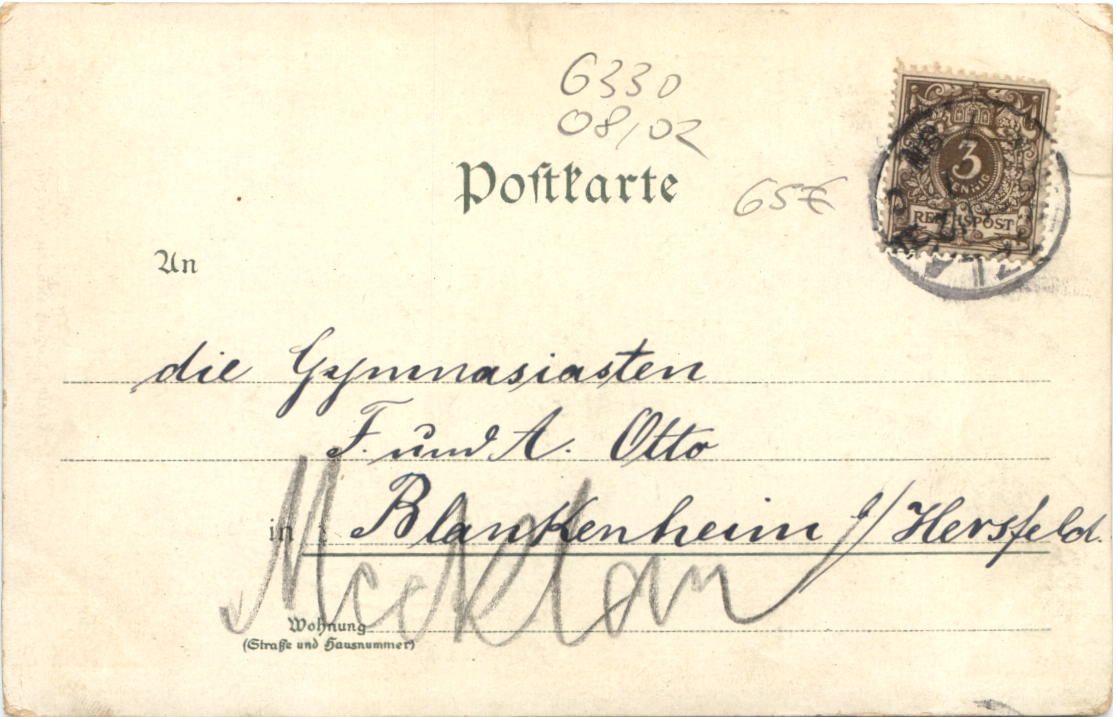 6330
08/02
Postkarte
65€
3
PFENNIG
REICHSPOST
An
die Gymnasiasten
F. und A. Otto
in Blankenheim b/Hersfeld.
Wohnung
(Straße und Hausnummer)